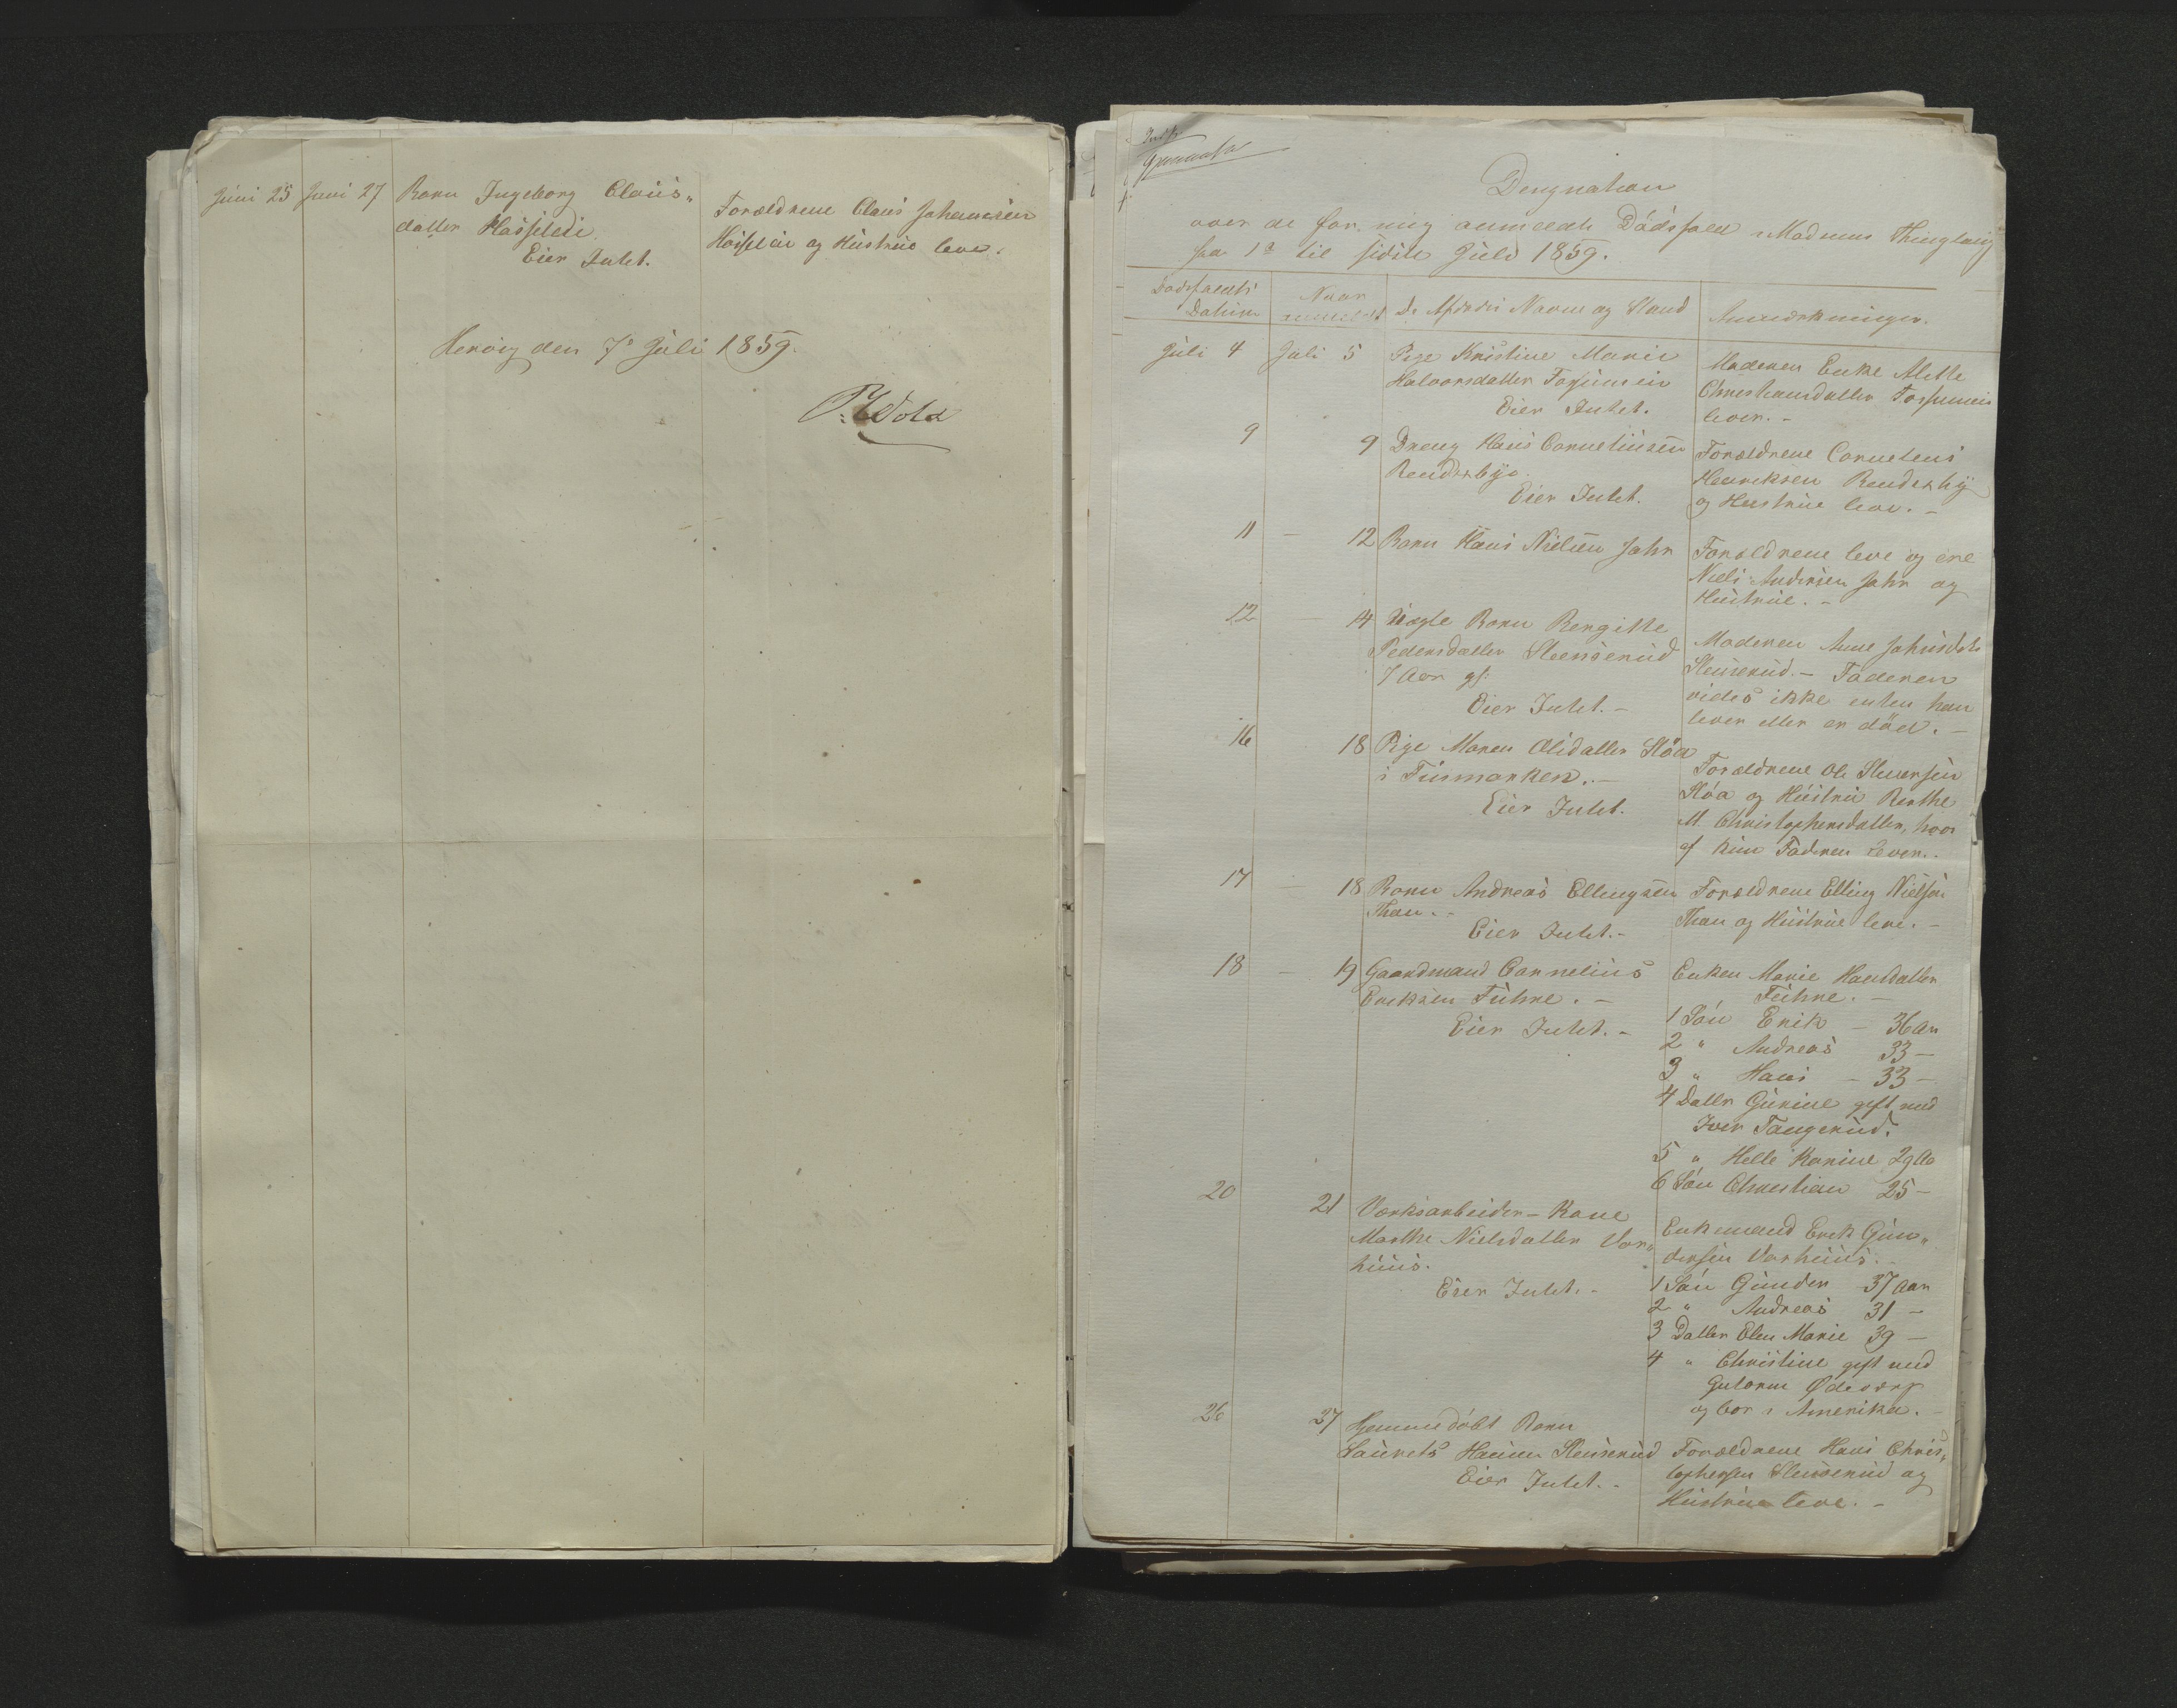 Juni 25 Juni 27 Barn Ingeborg Claus„
datter Hasseleie
Eier Intet.
Forældrene Claus Johannesen
Hasseleie og Hustrue leve.
Herøig den 7de Juli 1859.
Designation
over de for mig anmeldte Dødsfald i Modums Thinglaug
fra 1ste til sidste Juli 1859.
Dødsfaldets Datum
Naar anmeldt
De Afdødes Navne og Stand
Anmærkninger.
Juli 4 Juli 5 Pige Kristine Marie
Halvorsdatter Fossumeie
Eier Intet.
Moderen Enke Alette
Christiansdatter Fossumeie
lever. -
9 9 Dreng Hans Corneliusen
Rendebye.
Eier Intet.
Forældrene Cornelius
Henriksen Rendeby
og Hustrue leve. -
11 - 12 Barn Hans Nielsen Jahr
Forældrene leve og ere
Niels Andersen Jahr og
Hustrue. -
12 - 14 Uægte Barn Bergitte
Pedersdatter Steenserud
7 Aar gl:
Eier Intet. -
Moderen Anne Johnsdatr
Stenserud. - Faderen
vides ikke enten han
lever eller er død. -
16 18 Pige Maren Olsdatter Sløa
i Finmarken. -
Eier Intet.
Forældrene Ole Steversen
Sløa og Hustrue Berthe
M. Christophersdatter, hvor
af kun Faderen lever. -
17 - 18 Barn Andreas Ellingsen
Than. -
Eier Intet. -
Forældrene Elling Nielsen
Than og Hustrue leve. -
18 - 19 Gaardmand Cornelius
Eriksen Fuhre. -
Eier Intet. -
Enken Marie Hansdatter
Fuhre. -
1 Søn Erik - 36 Aar
2 " Andreas 33 -
3 " Hans - 33 -
4 Datter Gurine gift med
Iver Tangerud.
5 " Helle Karine 29 Aa
6 Søn Christian 25 -
20 21 Værksarbeider-Kone
Marthe Nielsdatter Var„
huus.
Eier Intet. -
Enkemand Erik Gun„
dersen Varhuus. -
1 Søn Gunder 37 Aar
2 " Andreas 31 -
3 Datter Elen Marie 39 -
4 " Christine gift med
Gulorm Ødeværp
og bor i Amerika. -
26 27 Hjemmedøbt Barn
Laurets Hansen Stenserud
Eier Intet. -
Forældrene Hans Chris„
tophersen Stensrud og
Hustrue leve. -